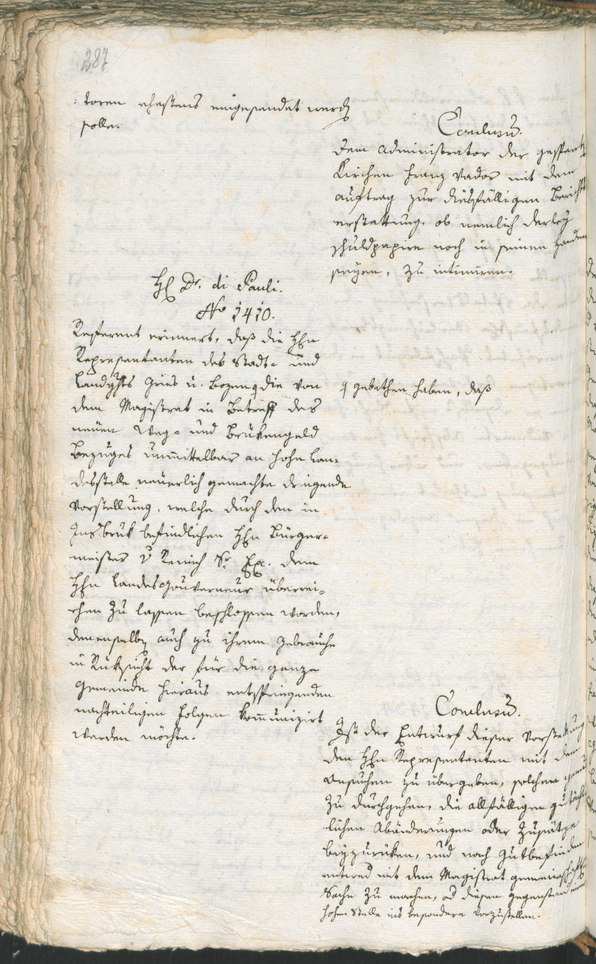 287
toren ehestens eingesendet werden
solle.
Conclusum.
Dem Administrator der gesperrten
Kirchen Franz Vador mit dem
Auftrag zur diesfälligen Berichts
erstattung, ob nemlich derley
Schuldpapire noch in seinen Handen
seyen, zu intimiren.
H. Dr. di Pauli.
No 1410.
Referent erinnert, daß die Hhn
Representanten des Stadt- und
Landghts Gries u. Bozen die von
gebethen haben, daß
dem Magistrat in Betreff des
neuen Weg- und Brükengeld
Bezuges unmittelbar an hohe Lan-
desstelle neuerlich gemachte dringende
Vorstellung, welche durch den in
Insbruk befindlichen Hhn Bürger-
meister v Sr. Ex. dem
Hhn Landesgouverneur überrei-
chen zu lassen beschlossen worden,
denenselben auch zu ihrem Gebrauche
in Rüksicht der für die ganze
Gemeinde hieraus entspringenden
nachteiligen Folgen kommunizirt
werden möchte.
Conclusum.
Ist der Entwurf dieser Vorstellung
den Hhn Representanten mit dem
Ansuchen zu übergeben, solchen
zu durchgehen, die allfälligen
lichen Abänderungen oder Zusätze
beyzurüken, und nach Gutbefinden
entwed mit dem Magistrat gemeinschaftliche
Sache zu machen, od diesen Gegenstand einer
hohen Stelle ins besondere vorzustellen.